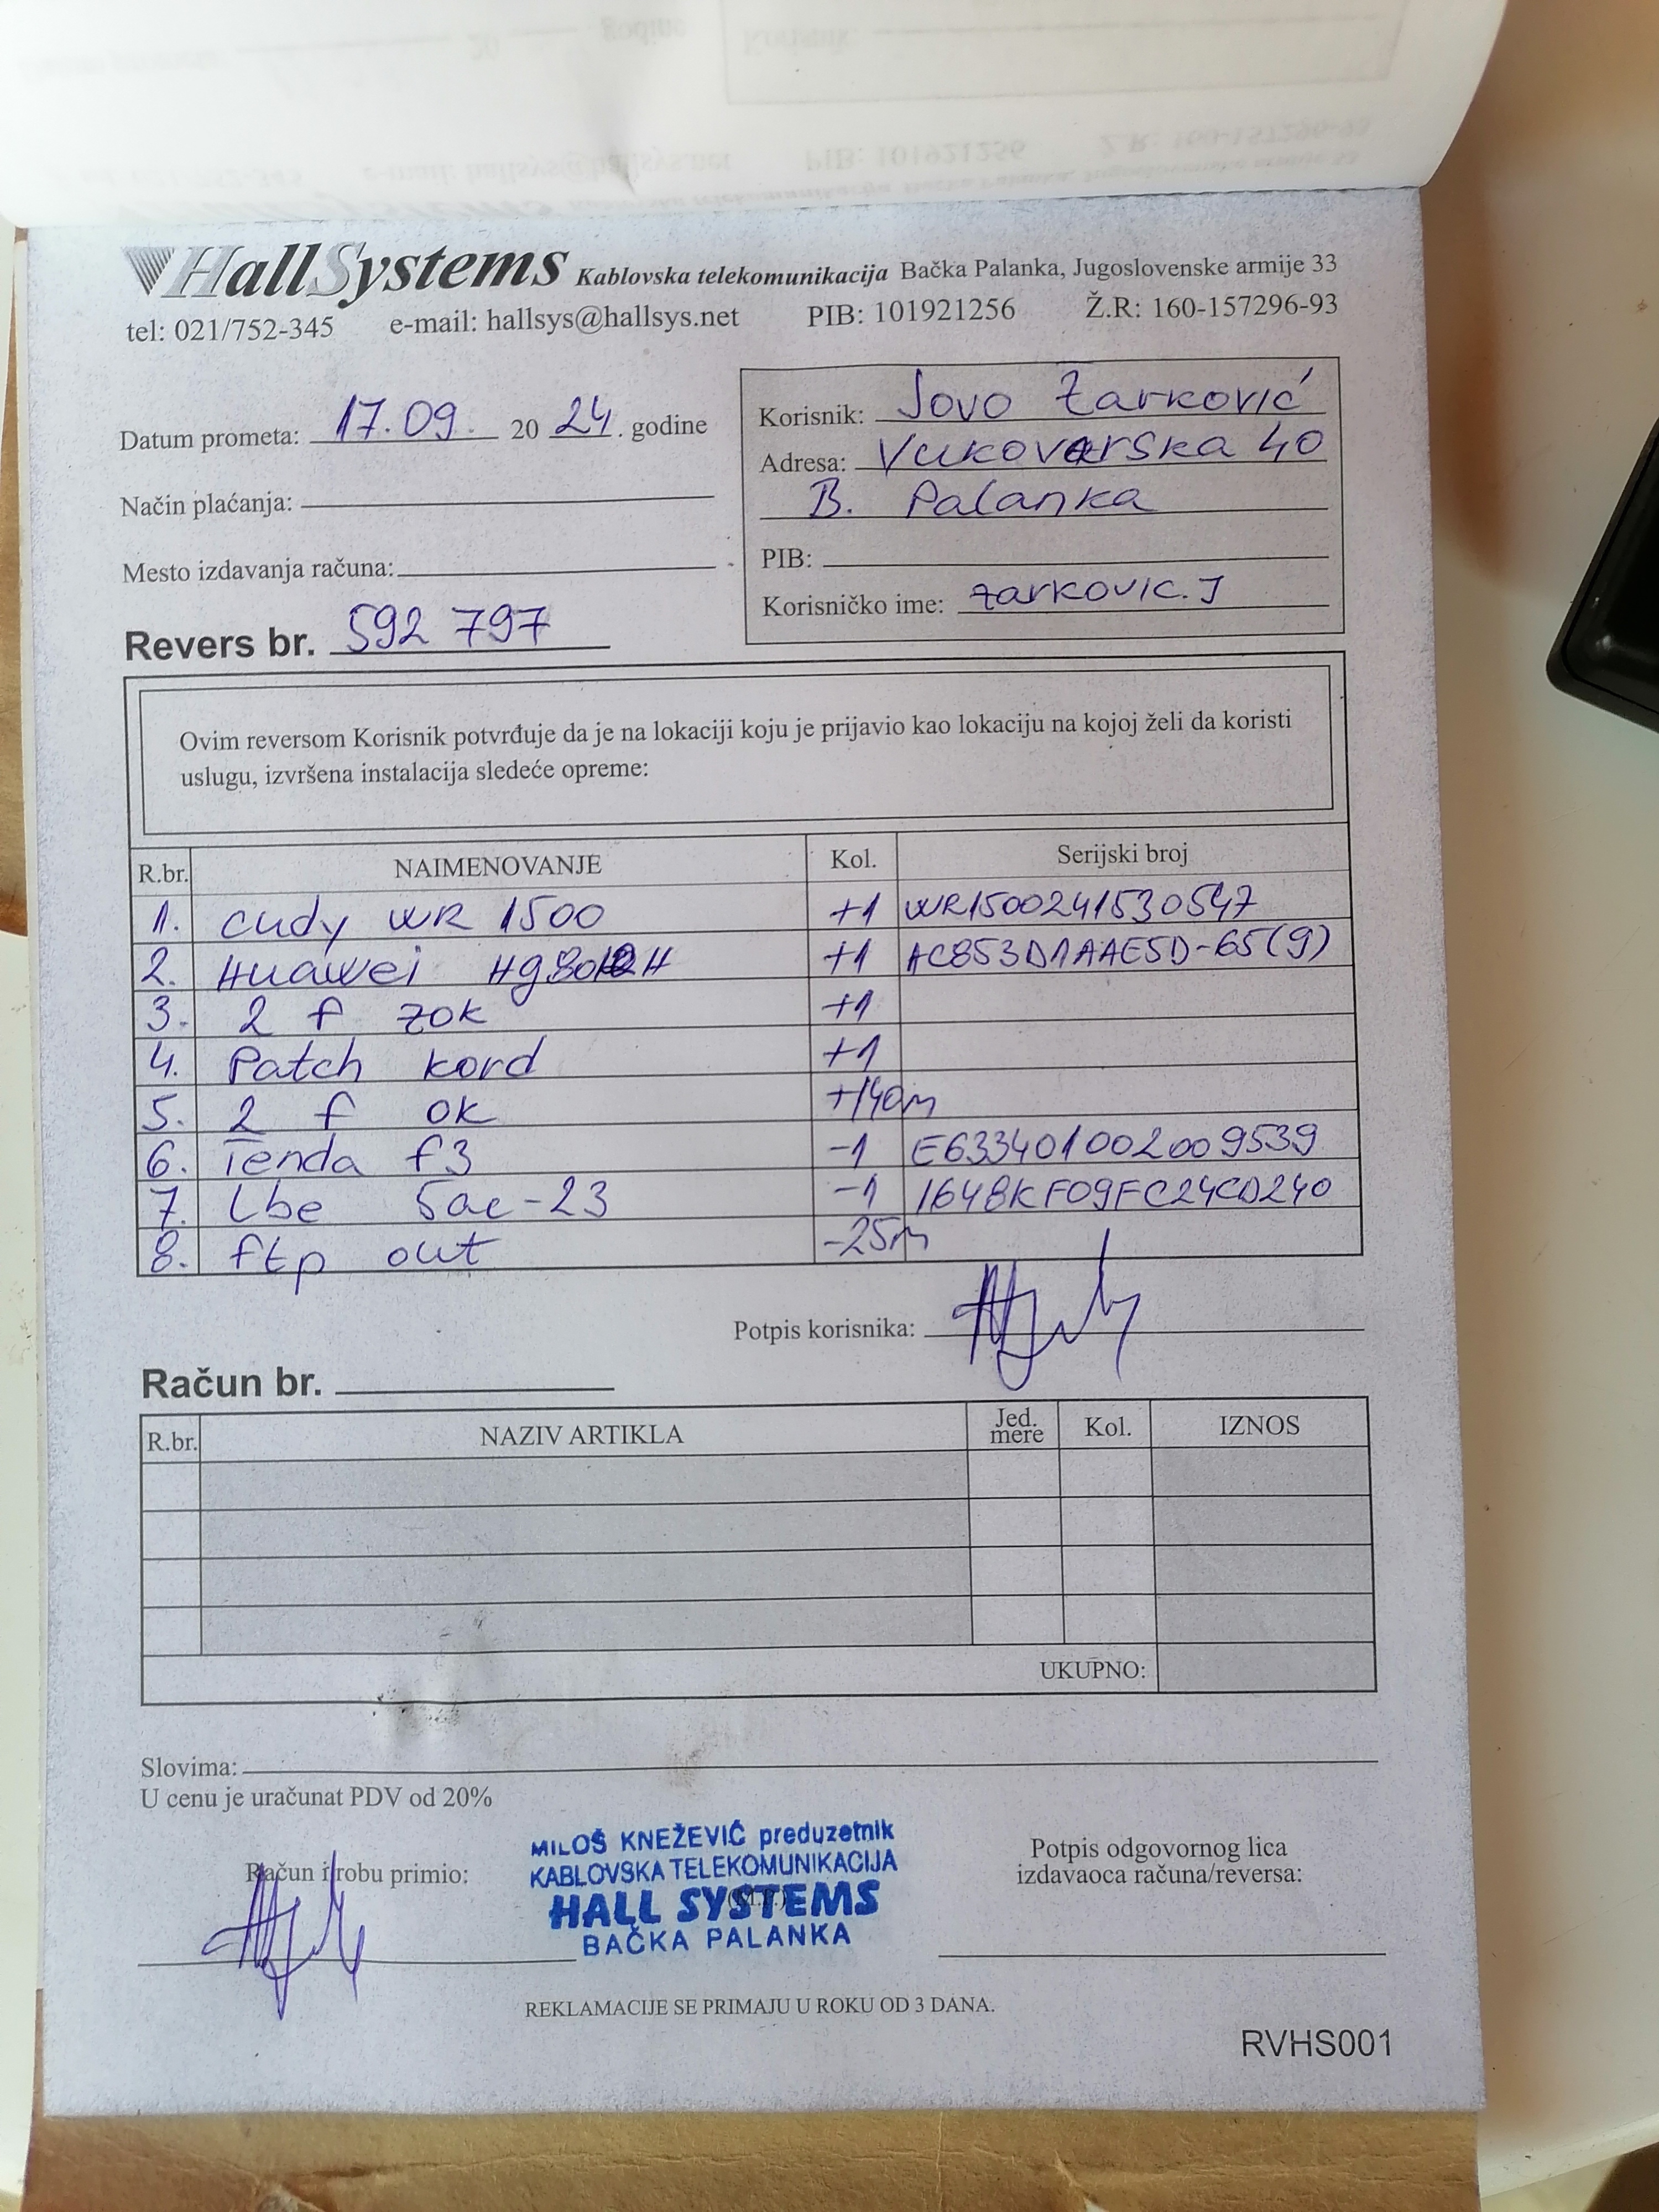 HallSystems Kablovska telekomunikacija Bačka Palanka, Jugoslovenske armije 33
tel: 021/752-345 e-mail: hallsys@hallsys.net PIB: 101921256 Ž.R: 160-157296-93
Datum prometa: 17.09. 20 24. godine
Način plaćanja:
Mesto izdavanja računa:
Revers br. 592 797
Korisnik: Jovo Žarković
Adresa: Vukovarska 40
B. Palanka
PIB:
Korisničko ime: zarkovic.J
Ovim reversom Korisnik potvrđuje da je na lokaciji koju je prijavio kao lokaciju na kojoj želi da koristi
uslugu, izvršena instalacija sledeće opreme:
R.br. NAIMENOVANJE Kol. Serijski broj
1. cudy WR 1500 +1 WR1500241530547
2. Huawei +1 AC853D1AAE5D-65(9)
3. 2 f zok +1
4. Patch kord +1
5. 2 f ok +140m
6. Tenda f3 -1 E6334010020009539
7. Lbe 5ac-23 -1 1648KF09FC24CD240
8. ftp out -25m
Potpis korisnika:
Račun br.
R.br. NAZIV ARTIKLA Jed. mere Kol. IZNOS
UKUPNO:
Slovima:
U cenu je uračunat PDV od 20%
Račun i robu primio:
MILOŠ KNEŽEVIĆ preduzetnik
KABLOVSKA TELEKOMUNIKACIJA
HALL SYSTEMS
BAČKA PALANKA
Potpis odgovornog lica
izdavaoca računa/reversa:
REKLAMACIJE SE PRIMAJU U ROKU OD 3 DANA.
RVHS001